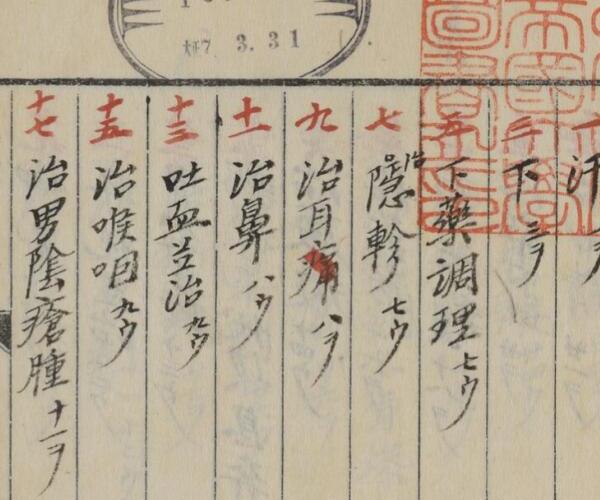 大正7 3.31
帝國
圖書
汗
三 下 三ヲ
五 下藥調理 七ウ
七 治隱軫 七ウ
九 治耳痛 八ヲ
十一 治鼻 八ウ
十三 吐血並治 九ウ
十五 治喉咽 九ウ
十七 治男陰瘡腫 十一ヲ